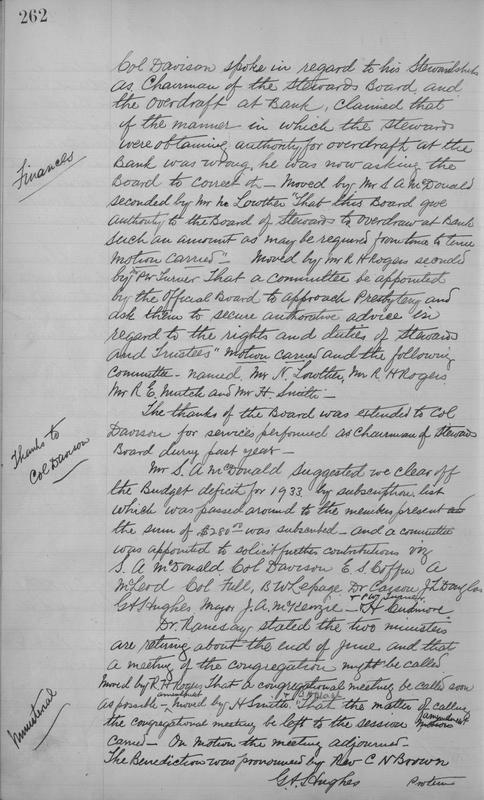 262
Col Davison spoke in regard to his Stewardship
as Chairman of the Stewards Board, and
the overdraft at Bank, claimed that
if the manner in which the stewards
were obtaining authority for overdraft at the
Finances
Bank was wrong, he was now asking the
Board to correct it — Moved by Mr S A McDonald
seconded by Mr N Lowther "That this Board give
authority to the Board of Stewards to overdraw at Bank
such an amount as may be required from time to time
Motion carried" — Moved by Mr R H Rogers seconded
by Mr P W Turner That a committee be appointed
by the Official Board to approach Presbytery and
ask them to secure authorative advice in
regard to the rights and duties of Stewards
and Trustees" Motion carried and the following
committee — named. Mr N. Lowther, Mr R H Rogers
Mr R E. Mutch and Mr H. Smith —
The thanks of the Board was extended to Col
Thanks to
Col Davison
Davison for services performed as Chairman of Stewards
Board during past year —
Mr S. A McDonald suggested we clear off
the Budget deficit for 1933 by subscription list
which was passed around to the members present
the sum of $280.00 was subscribed — and a committee
was appointed to solicit further contributions
S. A McDonald Col Davison E. S. Coffin A
McLeod Col Full, B W Lepage, Dr Carson J L Douglas
+ P W Turner
G A S Hughes, Major J. A. McKenzie — H Cudmore
Dr. Ramsay stated the two ministers
are retiring about the end of June, and that
a meeting of the congregation might be called
Ministerial
Moved by R. H Rogers That a congregational meeting be called soon
amendment
as possible — moved by H Smith "That the matter of calling
the congregational meeting be left to the session
amendment
carried — On motion the meeting adjourned —
The Benediction was pronounced by Rev C N Brown
G A S Hughes
Protem